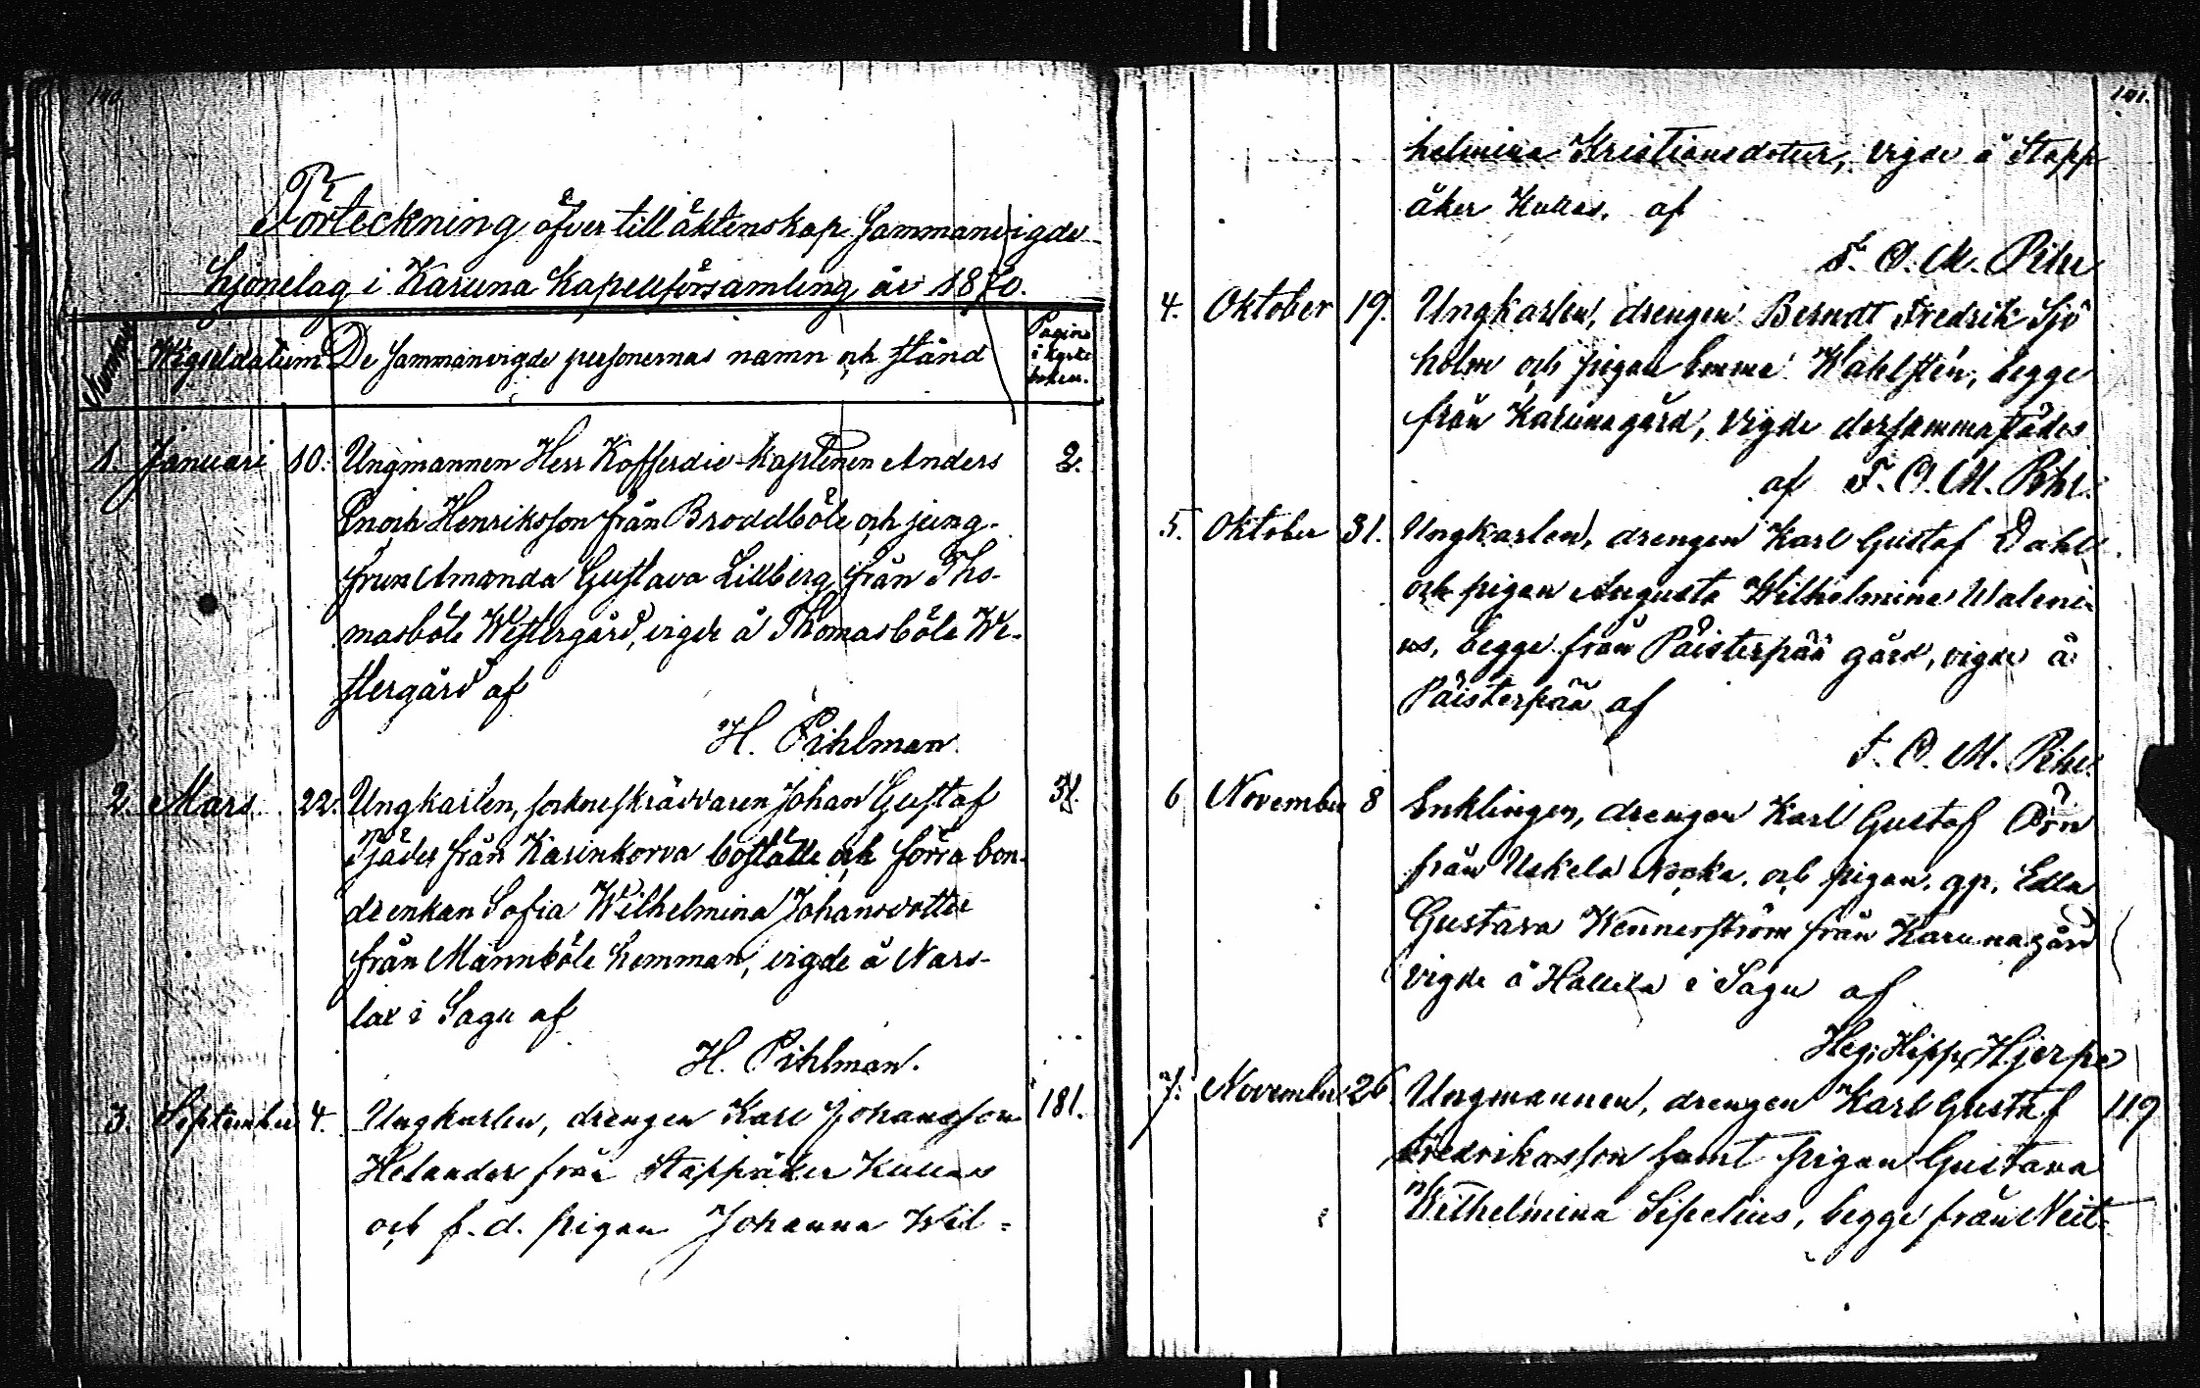 140.
Förteckning öfver till äktenskap Sammanvigde
hjonelag i Karuna Kapellförsamling år 1870.
Nummer
Wigseldatum
De Sammanvigde personernas namn och stånd
Pagina i kyrko boken.
1. Januari 10. Ungmannen Herr Kofferdie-Kaptenen Anders 2.
Enoch Henriksson från Broddböle och jung-
frun Amanda Gustava Lillberg från Tho-
masböle Westergård, vigde å Thomasböle We-
stergård af
H. Pihlman.
2. Mars 22. Ungkarlen, sockneskräddaren Johan Gustaf 31.
Tjäder från Karinkorva boställe och förra bon-
deenkan Sofia Wilhelmina Johansdotter
från Männböle hemman, vigde å Nars-
lax i Sagu af
H. Pihlman.
3. September 4. Ungkarlen, drengen Karl Johansson 181.
Helander från Stappåker Kullas
och f.d. pigan Johanna Wil=
141.
helmina Kristiansdotter, vigde å Stapp
åker Kullas. af
F. O. M. Pihl
4. Oktober 19. Ungkarlen, drengen Berndt Fredrik Sjö
holm och pigan Emma Wahlstén, begge
från Karunagård, vigde dersammastädes
af F. O. M. Pihl.
5. Oktober 31. Ungkarlen, drengen Karl Gustaf Dahl
och pigan Augusta Wilhelmina Waleni-
us, begge från Päisterpää gård, vigde å
Päisterpää af
F. O. M. Pihl.
6 November 8 Enklingen, drengen Karl Gustaf Örn
från Uskela och pigan, Edla
Gustava Wennerström från Karunagård
vigde å Hallela i Sagu af
Hjerpe
7. November 26. Ungmannen, drengen Karl Gustaf 119
Fredriksson samt pigan Gustava
Wilhelmina Sipelius, begge från Neit-